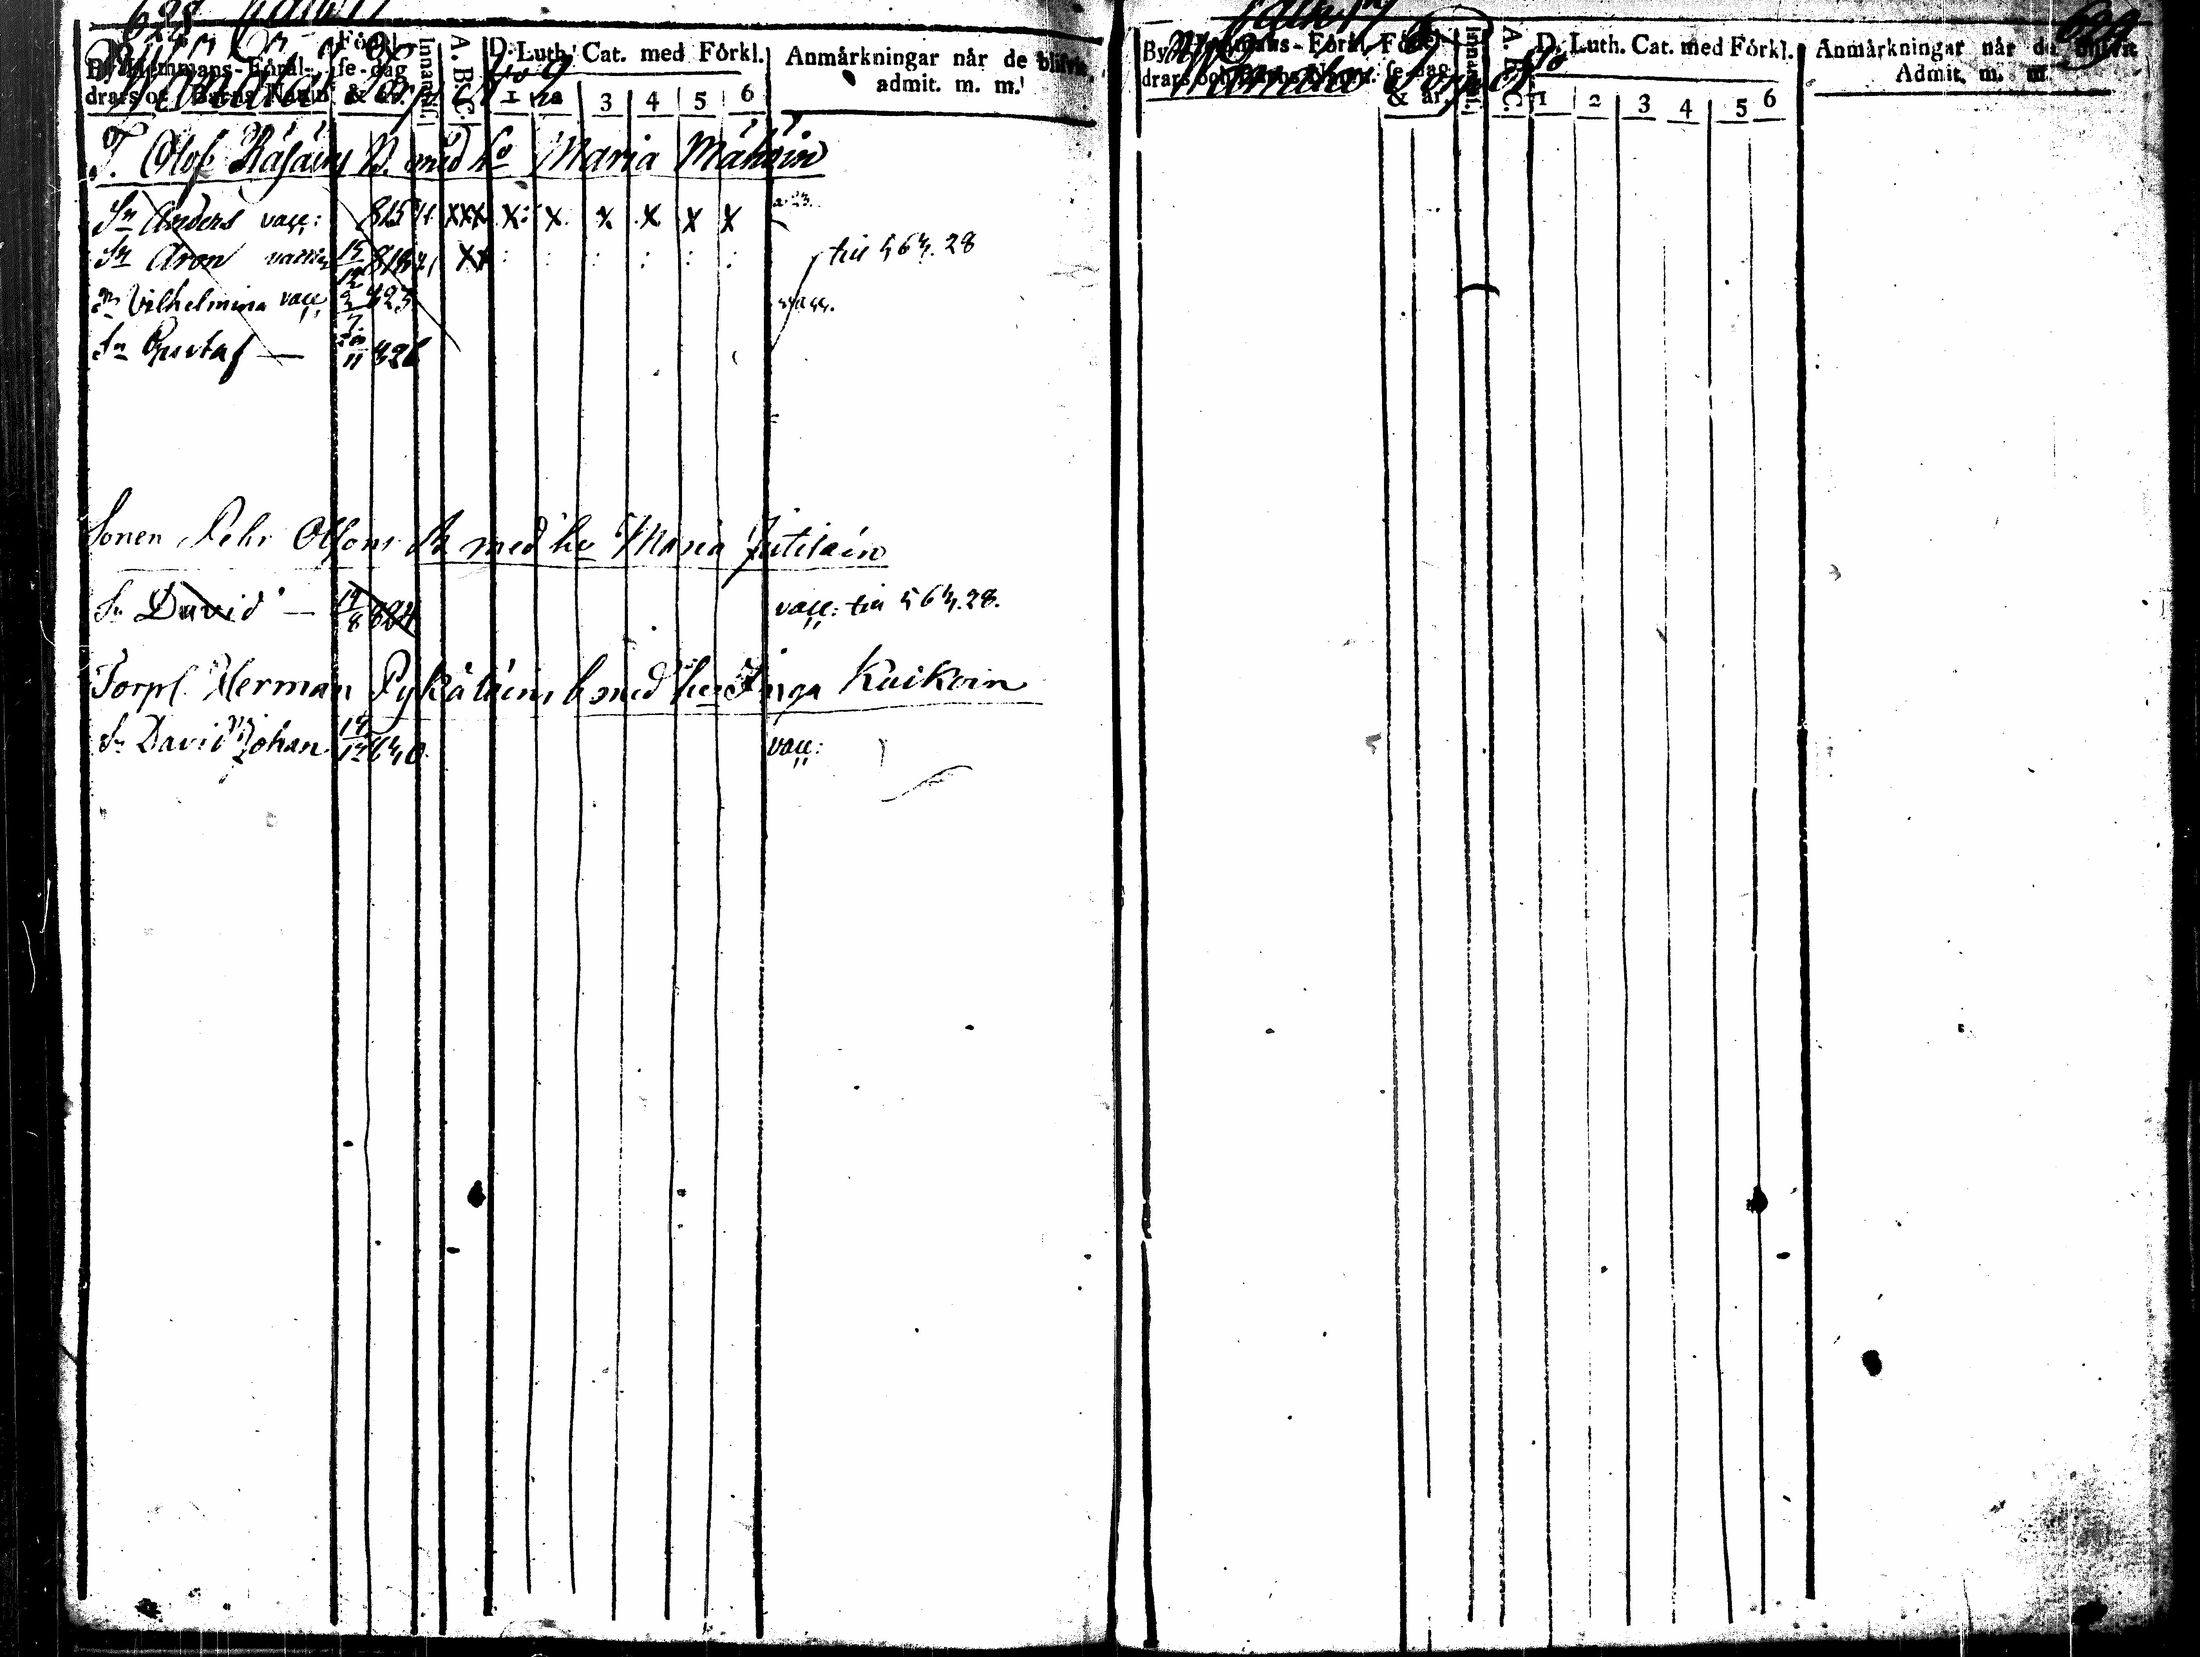 628
By Hemmans-Förål-
drars och Barns Namn
Födel
se-dag
& år.
Innanl.
A. B. C.
D. Luth. Cat. med Förkl.
1 2 3 4 5 6
Anmärkningar når de blifvit
admit. m. m.
T. Olof Räsäins B. med h Maria Mähöin
Sn Anders vacc: 815 XXX X: X X X X X a 23.
Sn Aron 15/12 818 XX : : : : : : till 564. 28
Vilhelmina vacc 2/7 823 vacc.
Sn Gustaf — 20/11 826
Sonen Pehr Olsons B med hu Maria Jutilain
Sn David — 19/8 824 vacc: till 564. 28.
Torp. Herman Pykäläins b med hu Inga Kuikoin
Sn David Johan vacc:
629
By Hemmans-Förål-
drars och Barns Namn
Födel
se-dag
& år.
Innanl.
A. B. C.
D. Luth. Cat. med Förkl.
1 2 3 4 5 6
Anmärkningar når de blifvit
Admit. m. m.